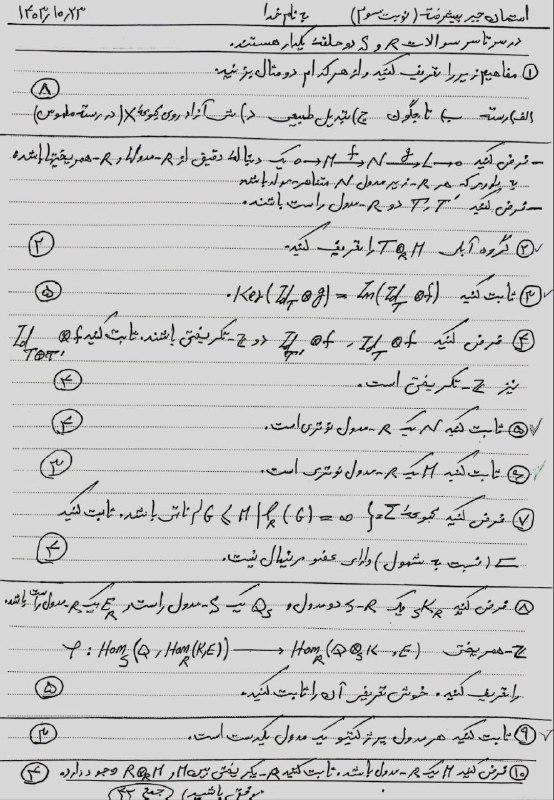 امتحان جبر پیشرفته (نوبت سوم) بنام خدا ۱۴۰۲,۱۰,۲۳
در سرتاسر سوالات R و S دو حلقه یکدار هستند.
① مفاهیم زیر را تعریف کنید و از هر کدام دو مثال بزنید.
الف) رسته ب) تابعگون ج) تبدیل طبیعی د) شی آزاد روی مجموعه X (در رسته ملموس) ⑧
- فرض کنید 0 → M →f N →g L → 0 یک دنباله دقیق از R-مدولها و R-همریختی‌ها باشد
به طوری که هر R-زیرمدول N متناهی-مولد باشد.
- فرض کنید T, T' دو R-مدول راست باشند.
② گروه آبلی T⊗_R M را تعریف کنید. ②
③ ثابت کنید Ker(Id_T ⊗ g) = Im(Id_T ⊗ f). ⑤
④ فرض کنید Id_T ⊗ f, Id_T' ⊗ f دو Z-تکریختی باشند. ثابت کنید Id_T⊕T' ⊗ f
نیز Z-تکریختی است. ④
⑤ ثابت کنید N یک R-مدول نوتری است. ④
⑥ ثابت کنید M یک R-مدول نوتری است. ③
⑦ فرض کنید مجموعه Σ = { G ≤ M | ℓ_R(G) = ∞ } ناتهی باشد. ثابت کنید
Σ (نسبت به شمول) دارای عضو مینیمال نیست. ④
⑧ فرض کنید _S K_R یک S-R دو مدول و Q_S یک S-مدول راست و E_R یک R-مدول راست باشد.
Z-همریختی φ : Hom_S(Q, Hom_R(K,E)) → Hom_R(Q⊗_S K, E)
را تعریف کنید و خوش تعریفی آن را ثابت کنید. ⑤
⑨ ثابت کنید هر مدول پروژکتیو یک مدول یکدست است. ③
⑩ فرض کنید M یک R-مدول باشد. ثابت کنید R-یکریختی بین M و R⊗_R M وجود دارد. ④
موفق باشید (جمع ۴۲)